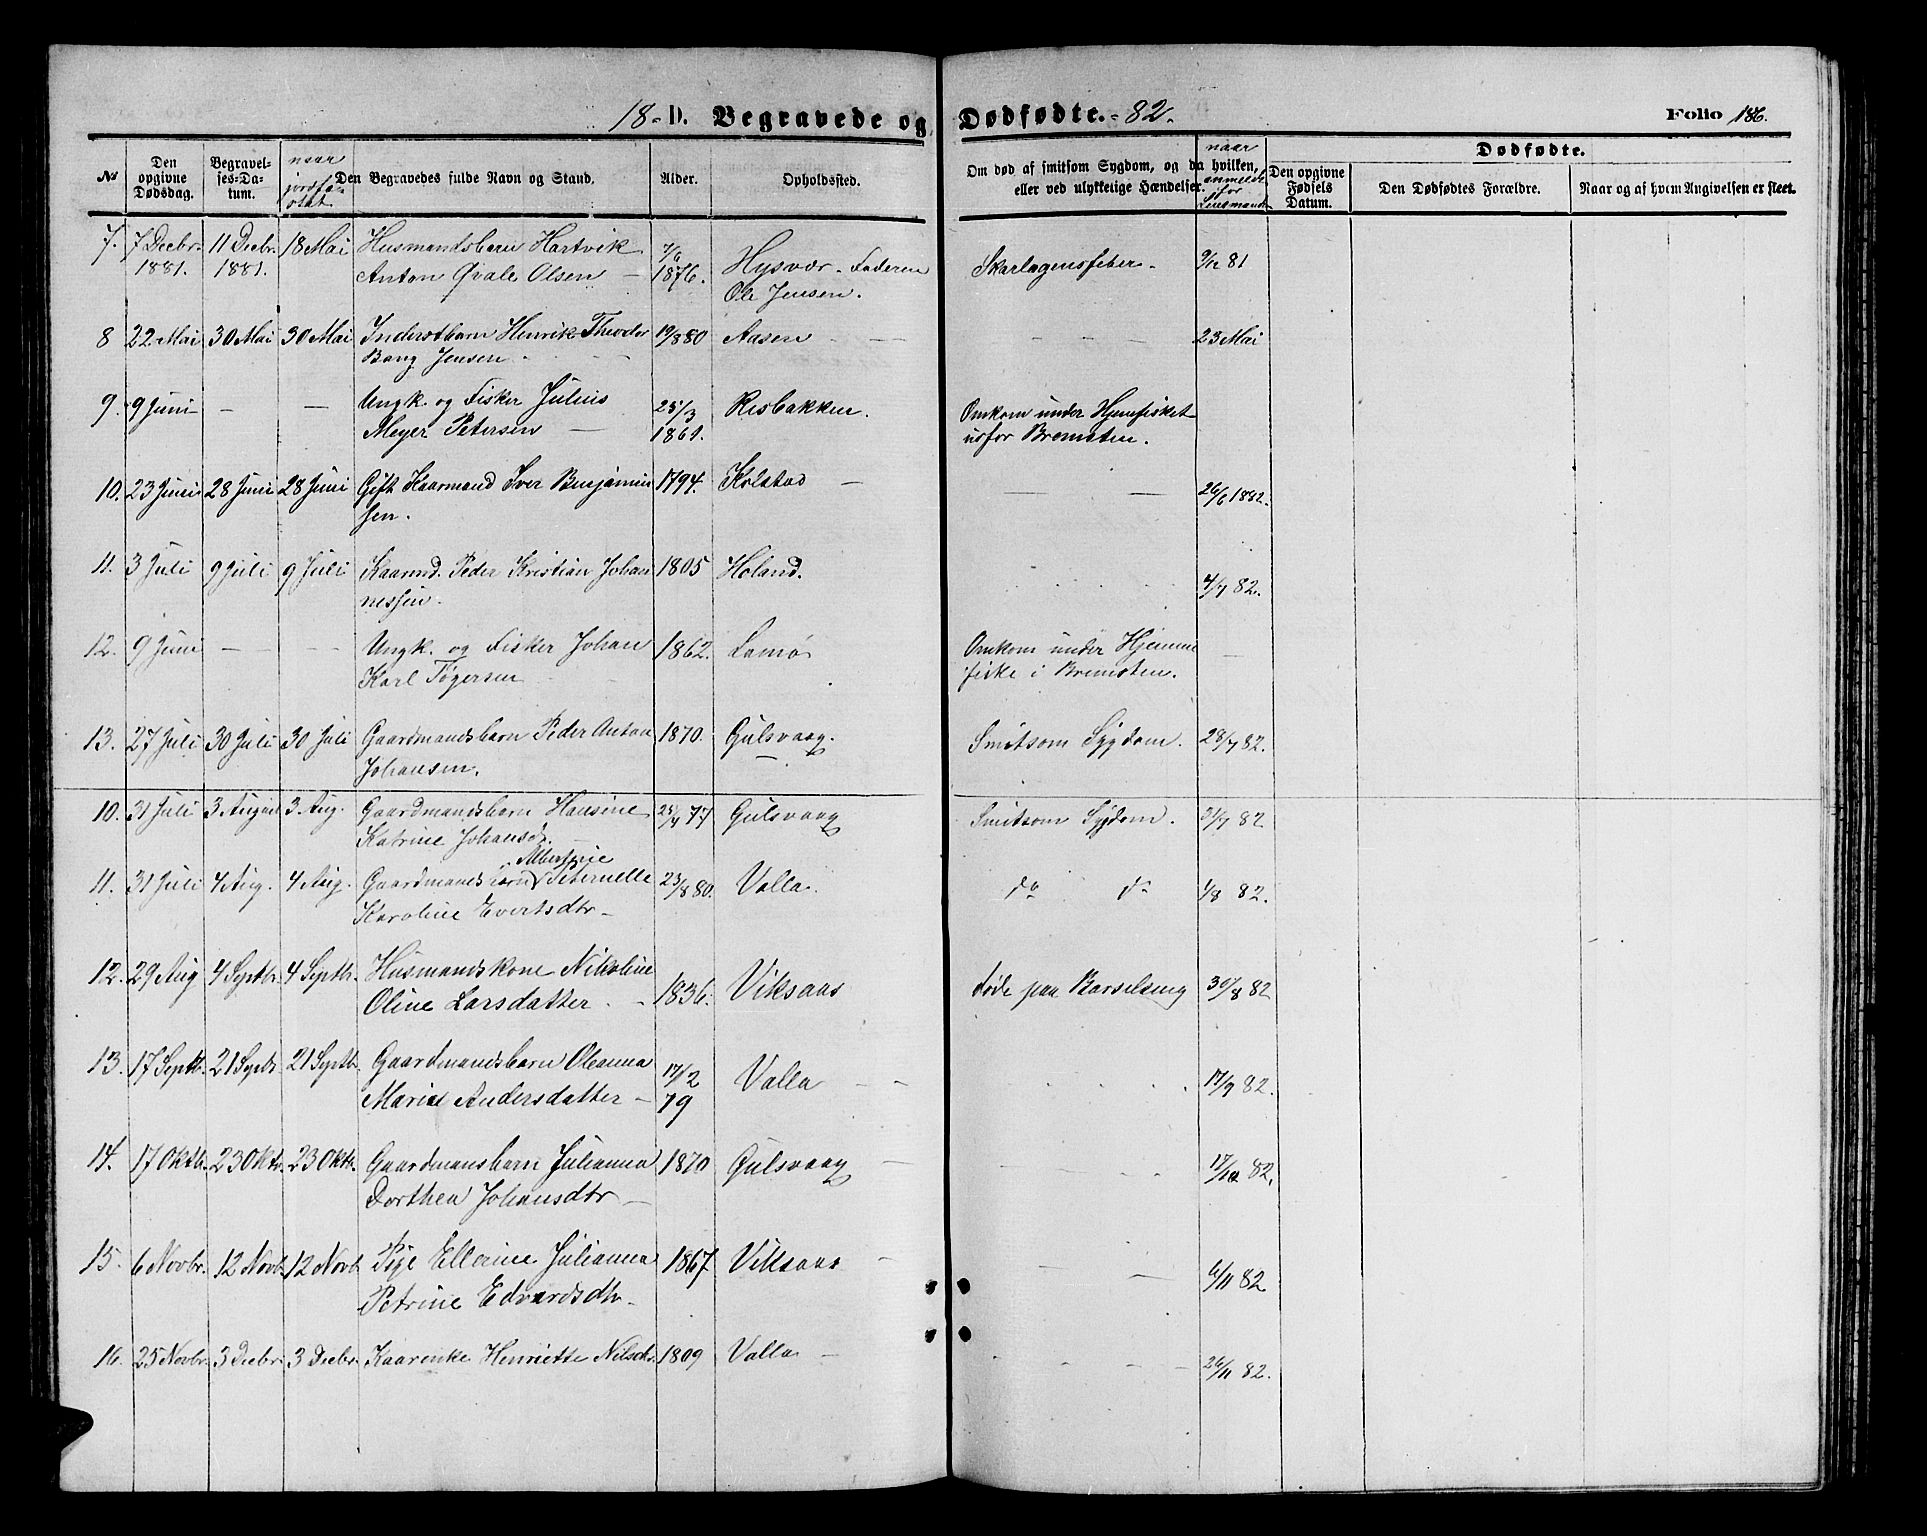 18- D. Begravede og Dødfødte. -82.
Folio 186.
No
Den opgivne Dødsdag.
Begravel-ses-Da-tum.
naar jordfæ-stet
Den Begravedes fulde Navn og Stand.
Alder.
Opholdssted.
Om død af smitsom Sygdom, og da hvilken, eller ved ulykkelige Hændelser.
naar anmeldt for Lensmand
Dødfødte.
Den opgivne Fødsels Datum.
Den Dødfødtes Forældre.
Naar og af hvem Angivelsen er skeet.
7. 7 Decbr. 11 Decbr. 18 Mai Husmandsbarn Hartvik 7/6
1881. 1881. Anton Qvale Olsen — 1876. Hysvær - Faderen Skarlagensfeber - 9/12 81
Ole Jensen.
8 22 Mai 30 Mai 30 Mai Inderstbarn Henrik Theodor 19/8 80 Aasen - — — - - - 23 Mai
Bang Jensen -
9. 9 Juni — — Ungk. og Fisker Julius 25/3 Risbakken. Omkom under Hjemfisket
Meyer Petersen — 1861. udfor Bremsten.
10. 23 Juni 28 Juni 28 Juni Gift Kaarmand Iver Benjamin 1794. Kolstad — — — 26/6 1882.
sen.
11. 3 Juli 9 Juli 9 Juli Kaarmd. Peder Kristian Johan 1805 Holand. 4/7 82.
nessen.
12. 9 Juni — — Ungk. og Fisker Johan 1862. Lamø Omkom under Hjemme —
Karl Tøgersen fiske i Bremsten.
13. 27 Juli 30 Juli 30 Juli Gaardmandsbarn Peder Anton 1870. Gulsvaag. Smitsom Sygdom. 28/7 82.
Johansen.
10. 31 Juli 3 August 3. Aug. Gaardmandsbarn Hansine 25/4 77 Gulsvaag Smitsom Sygdom. 31/7 82
Katrine Johansd.
Albertine
11. 31 Juli 4 Aug. 4 Aug. Gaardmandsbarn Peternelle 23/8 80. Valla. do do 1/8 82.
Karoline Evertsdtr -
12. 29 Aug 4 Septbr. 4 Septbr. Husmandskone Nikoline
Oline Larsdatter. - 1836. Viksaas døde paa Barselseng 30/8 82
13. 17 Septb. 21 Septb. 21 Septbr. Gaardmandsbarn Oleanna 17/2 Valla - - 17/9 82.
Marie Andersdatter — 79
14. 17 Oktb. 23 Oktr. 23 Oktb. Gaardmansbarn Julianna 1870 Gulsvaag — 17/10 82.
Dorthea Johansdtr —
15. 6 Novbr. 12 Novb. 12 Novb Pige Ellerine Julianna 1867 Viksaas - — 6/11 82
Petrine Edvardsdtr.
16. 25 Novbr. 3 Decbr. 3 Decbr. Kaarenke Henriette Nilsdtr. 1809 Valla — - - 26/11 82.